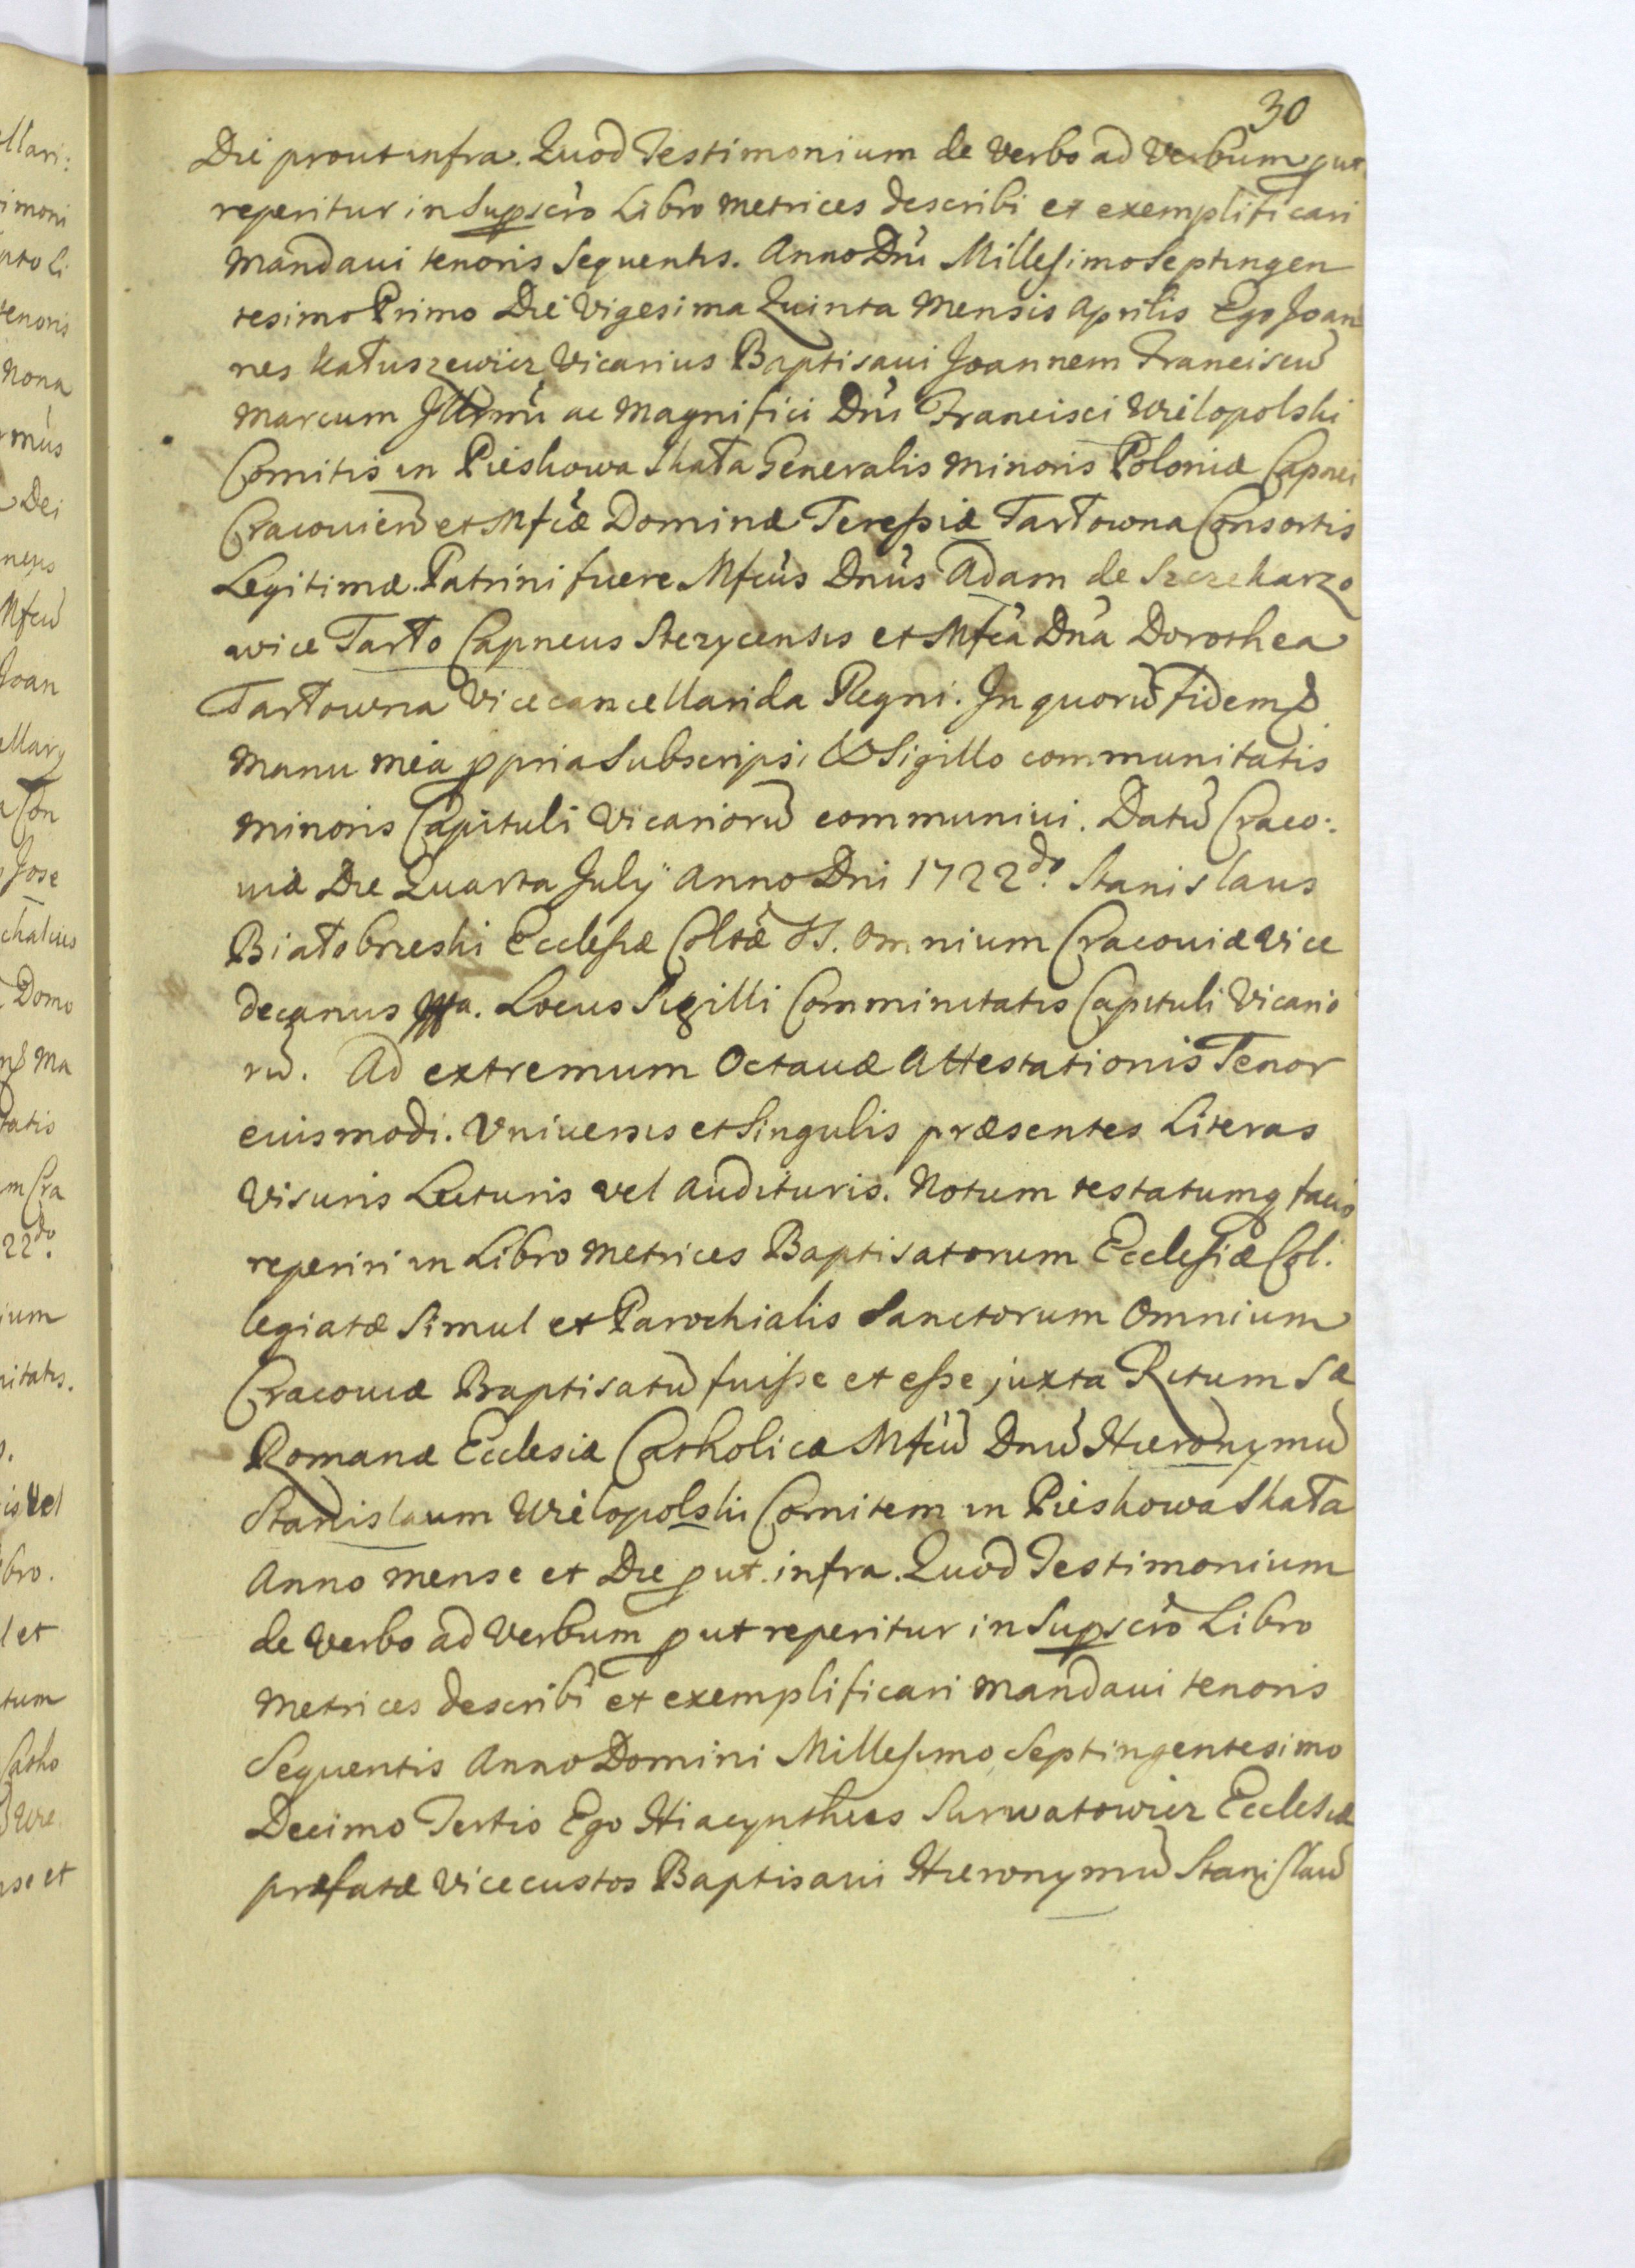 30
Die prout infra. Quod Testimonium de Verbo ad Verbum put
reperitur in Supscrō Libro metrices describi et exemplificari
mandaui tenoris Sequentis. Anno Dnī Millesimo Septingen
tesimo Primo Die Vigesima Quinta mensis aprilis Ego Joan
nes Katuszewicz Vicarius Baptisaui Joannem Franciscū
marcum Illmī ac magnifici Dnī Francisci Wielopolski
Comitis in Pieskowa Skała Generalis minoris Poloniæ Capnei
Cracouieñ et Mfcæ Dominæ Teressiæ Tarłowna Consortis
Legitimæ. Patrini fuere Mfcus Dnus Adam de Szczekarzo
wice Tarło Capneus Stezycensis et Mfca Dna Dorothea
Tarłowna Vicecancellarida Regni. In quorū Fidem &
manu mea ppria Subscripsi & Sigillo communitatis
minoris Capituli Vicariorū communiui. Datū Craco:
uiæ Die Quarta July Anno Dni 1722do. Stanislaus
Białobrzeski Ecclesiæ Coltæ SS. Omnium Cracouiæ Vice
decanus mppa. Locus Sigilli Comminitatis Capituli Vicario
rū. Ad extremum Octauæ Attestationis Tenor
euismodi. Vniuersis et Singulis præsentes Literas
Visuris Lecturis vel audituris. Notum testatumq facio
reperiri in Libro metrices Baptisatorum Ecclesiæ Col.
legiatæ Simul et Parochialis Sanctorum Omnium
Cracouiæ Baptisatū fuisse et esse juxta Ritum Sæ
Romanæ Ecclesiæ Catholicæ Mfcū Dnū Hieronymū
Stanislaum Wielopolski Comitem in Pieskowa Skała
Anno mense et Die put infra. Quod Testimonium
de Verbo ad Verbum put reperitur in Supscrō Libro
metrices describi et exemplificari mandaui tenoris
Sequentis Anno Domini Millesimo Septingentesimo
Decimo Tertio Ego Hiacynthus Surwatowicz Ecclesiæ
præfatæ Vicecustos Baptisaui Hieronymū Stanislaū